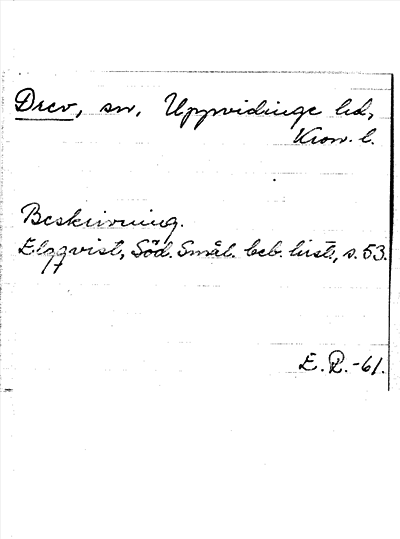 Drev, sn, Uppvidinge hd,
Kron. l.
Beskrivning.
Elgqvist, Söd. Smål. beb. hist., s. 53.
E. R. -61.